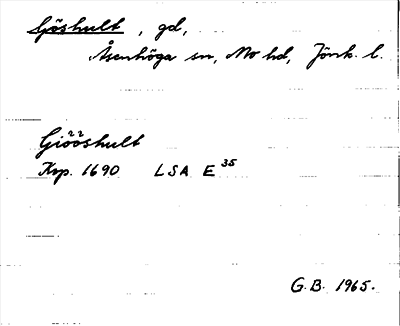 Gjöshult, gd,
Åsenhöga sn, Mo hd, Jönk. l.
Giööshult
Krp. 1690 LSA E 35
G.B. 1965.